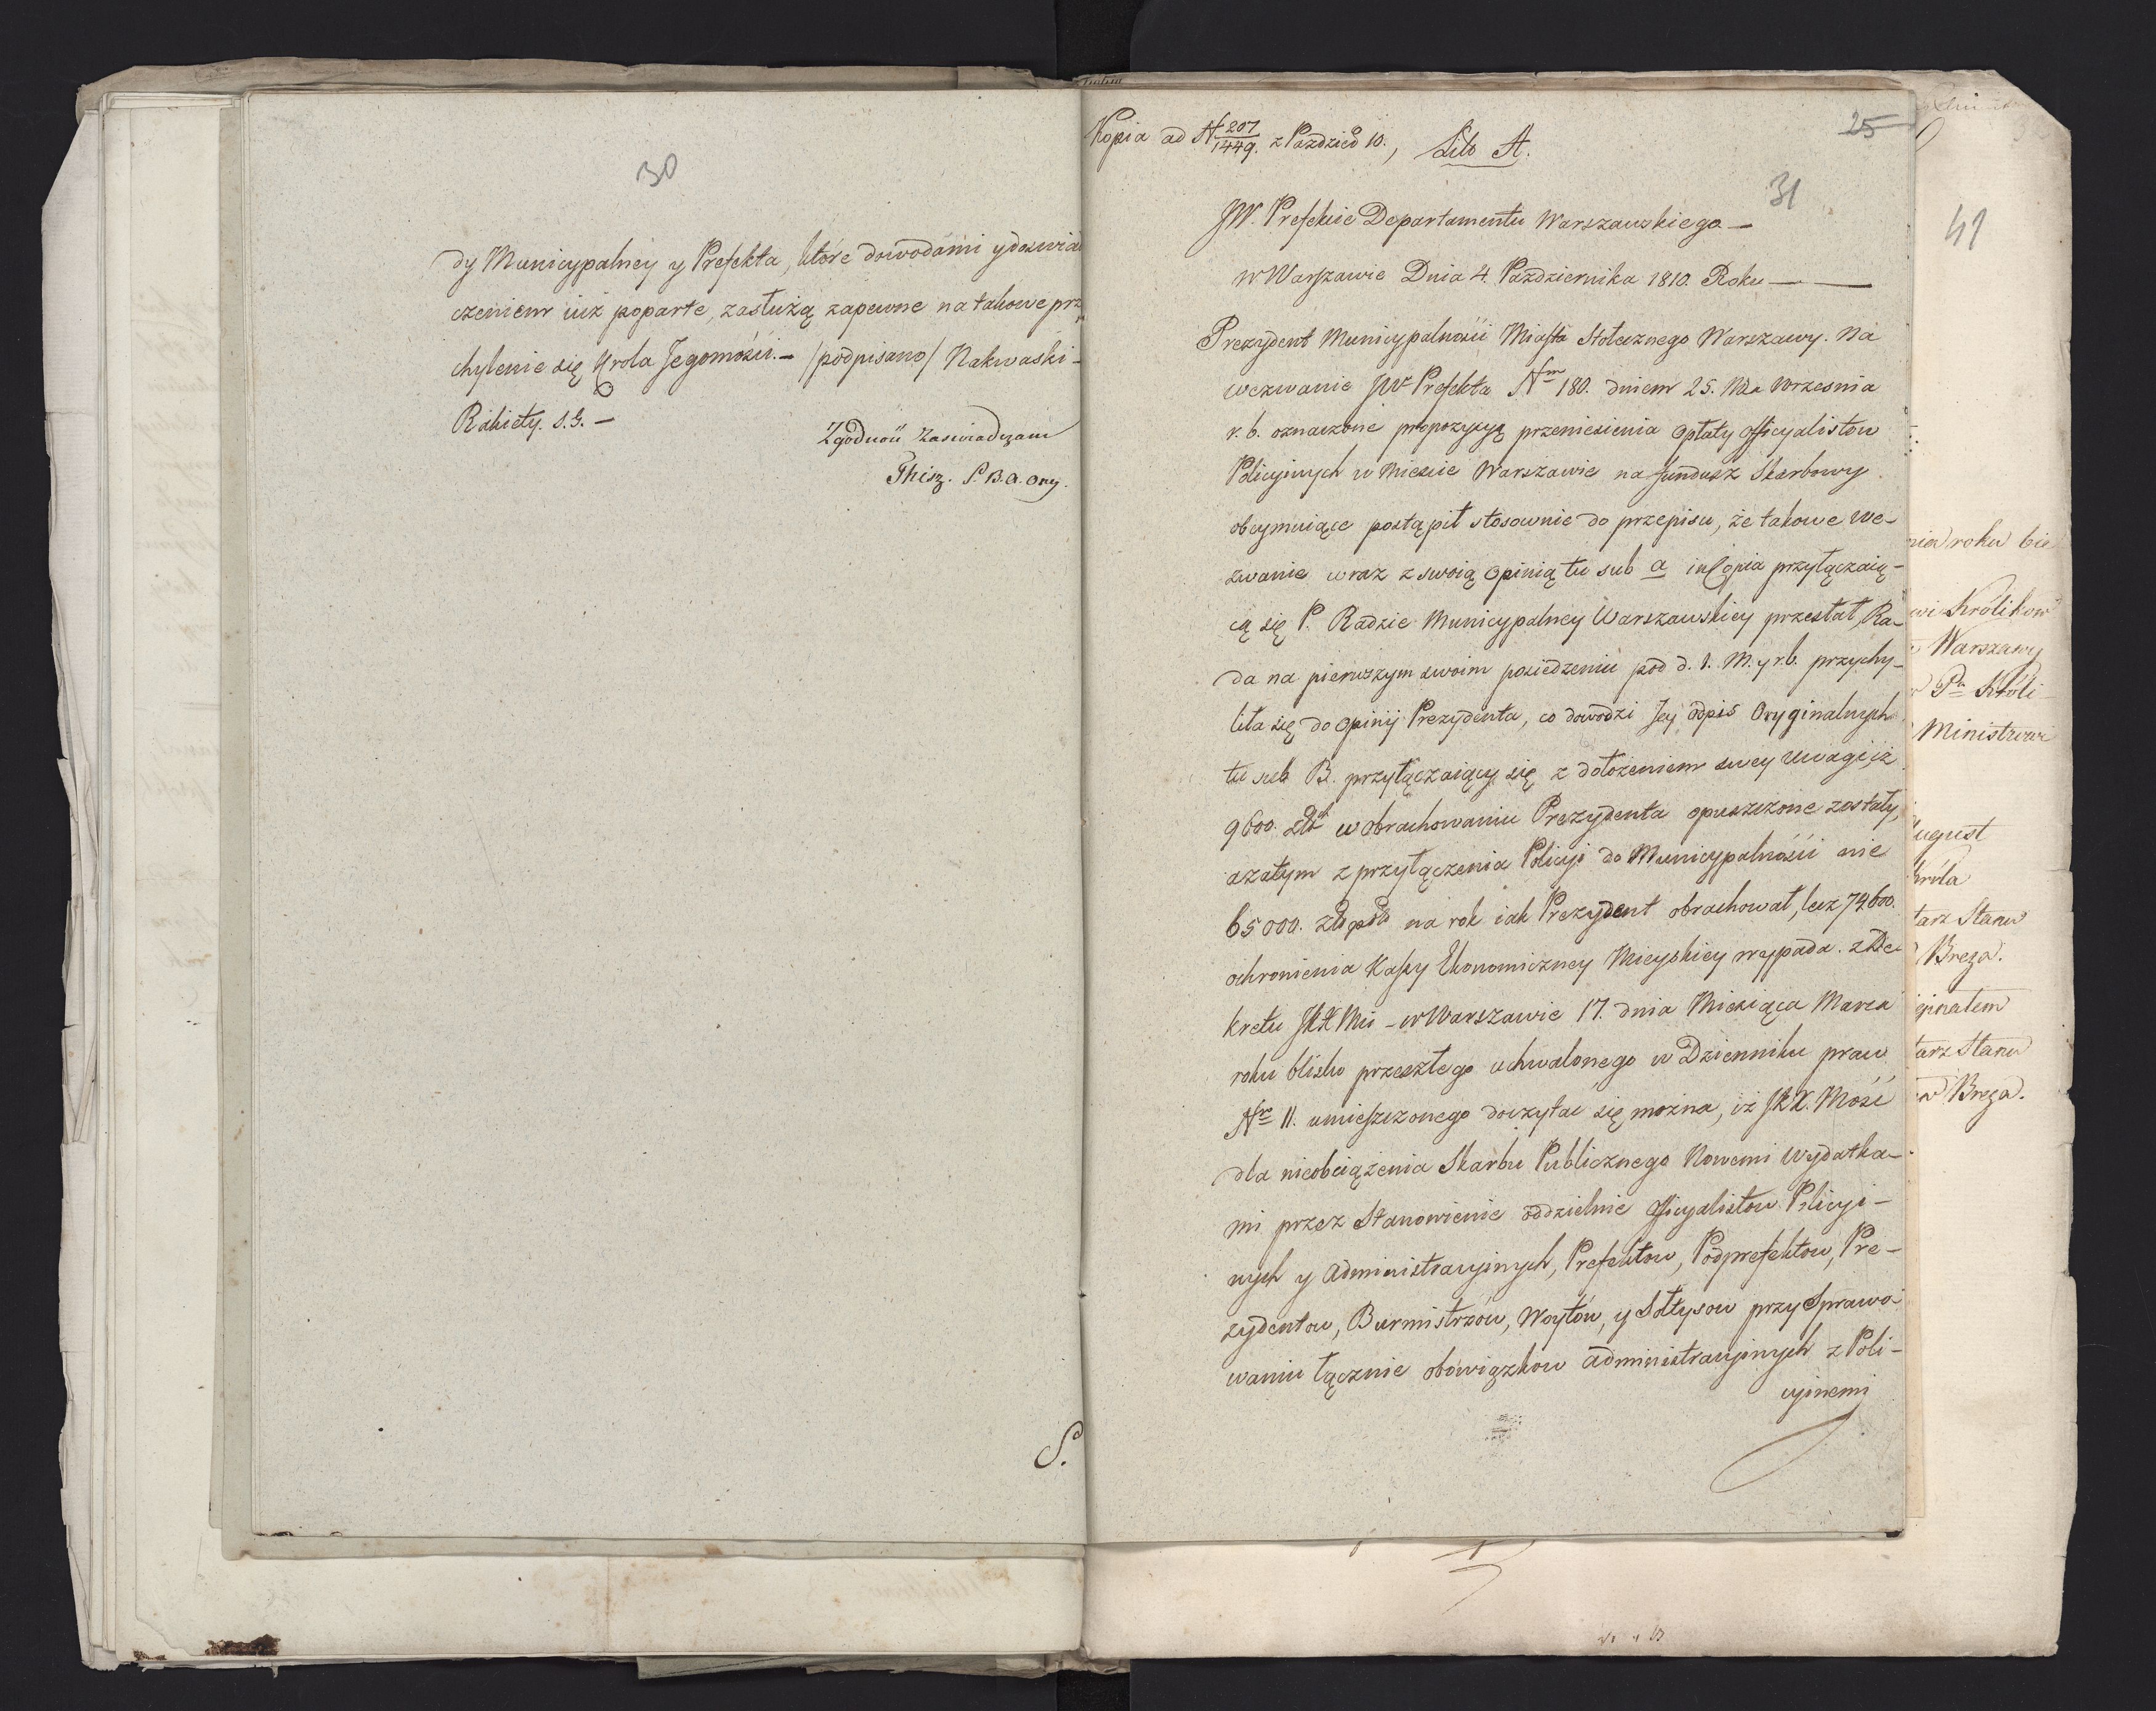 30
dy Municypalney y Prefekta, które dowodami y doswiad
czeniem iuż poparte, zasłużą zapewne na takowe prz
chylenie się Króla Jegomości. — /podpisano/ Nakwaski —
Rakiety. S. G. —
Zgodność zaswiadczam
Thisz. S. B. A. Ony.
S.
Kopia ad N 207/1449. z Paździer 10., Lib A.
25
31
JW. Prefekcie Departamentu Warszawskiego —
w Warszawie Dnia 4. Pazdziernika 1810. Roku —
Prezydent Municypalności Miasta Stołecznego Warszawy. Na
wezwanie JW Prefekta Nrm 180. dniem 25. Mca Wrzesnia
r. b. oznaczone propozycyą przeniesienia opłaty officyalistow
Policyinych w Miescie Warszawie na fundusz Skarbowy
obeymuiące postąpił stosownie do przepisu, że takowe we-
zwanie wraz z swoią opinią tu sub a in Copia przyłączaią-
cą się P. Radzie Municypalney Warszawskiey przesłał, Ra-
da na pierwszym swoim posiedzeniu pod d. 1. M. y r. b. przychy-
liła się do opinij Prezydenta, co dowodzi Jey odpis Oryginalnych
tu sub B. przyłączaiący się z dołożeniem swey uwagi, iż
9600. Złt w obrachowaniu Prezydenta opuszczone zostały,
azatym z przyłączenia Policyi do Municypalności nie
65000. Złt pols na rok iak Prezydent obrachował, lecz 74600.
ochronienia Kassy Ekonomiczney Mieyskiey wypada. z De-
kretu JKK Mci — w Warszawie 17. dnia Miesiąca Marca
roku blisko przeszłego uchwalonego w Dzienniku praw
Nro 11. umieszczonego doczytać się można, iż JKK. Mość
dla nieobciążenia Skarbu Publicznego Nowemi wydatka-
mi przez Stanowienie oddzielnie officyalistow Policyi-
nych y Administracyinych, Prefektow, Podprefektow, Pre-
zydentow, Burmistrzów, Woytów, y Sołtysow przy Sprawo
waniu łącznie obowiązkow administracyinych z Poli-
cyinemi
41
nia roku bie
wi Królikow
Warszawy
Pa Króli
Ministrow
August
Króla
tarz Stanu
Breza.
iginałem
tarz Stanu
Breza.